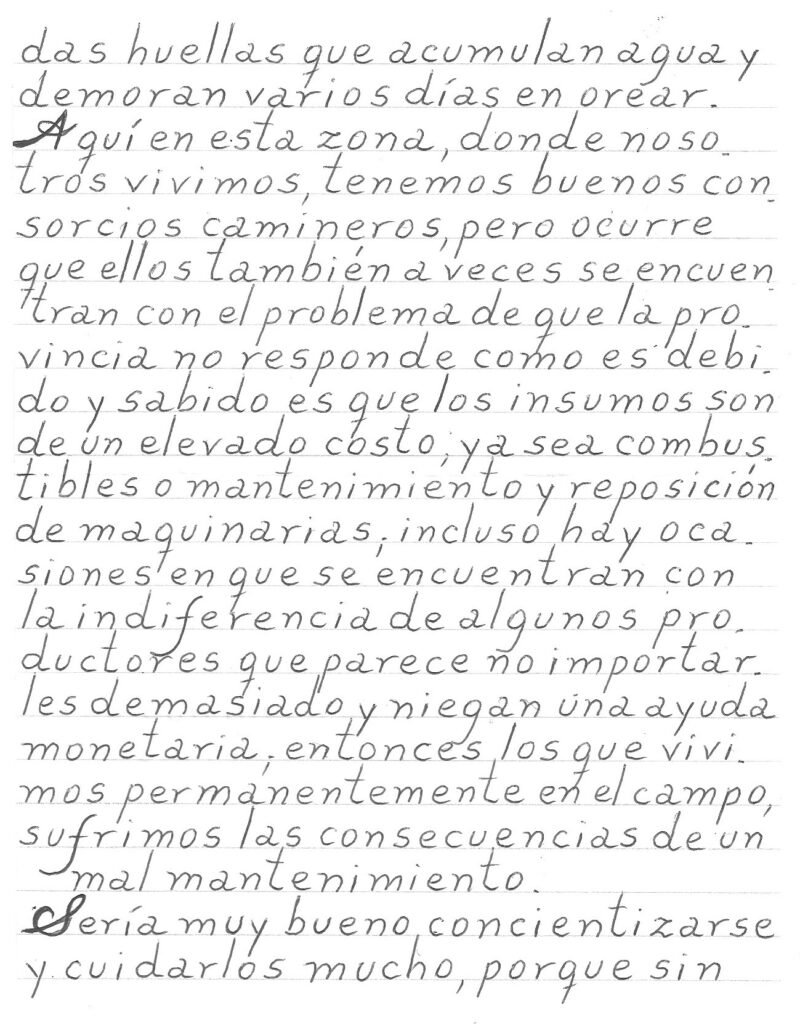 das huellas que acumulan agua y
demoran varios días en orear.
Aquí en esta zona, donde noso_
tros vivimos, tenemos buenos con_
sorcios camineros, pero ocurre
que ellos también a veces se encuen_
tran con el problema de que la pro_
vincia no responde como es debi_
do y sabido es que los insumos son
de un elevado costo, ya sea combus_
tibles o mantenimiento y reposición
de maquinarias; incluso hay oca_
siones en que se encuentran con
la indiferencia de algunos pro_
ductores que parece no importar_
les demasiado y niegan una ayuda
monetaria; entonces los que vivi_
mos permanentemente en el campo,
sufrimos las consecuencias de un
mal mantenimiento.
Sería muy bueno concientizarse
y cuidarlos mucho, porque sin